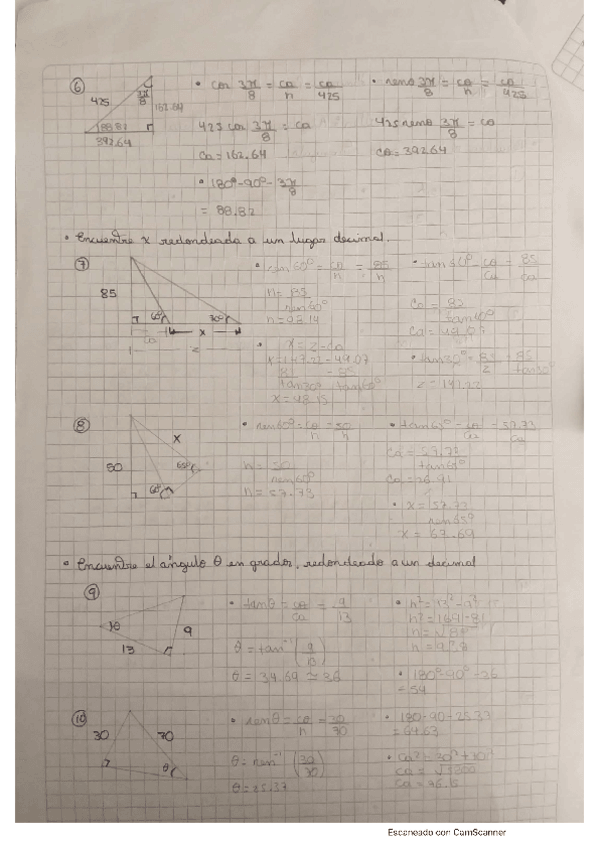 6
425
3π/8
162.64
88.82
392.64
• cos 3π/8 = ca/h = ca/425
425 cos 3π/8 = ca
ca = 162.64
• 180° - 90° - 3π/8
= 88.82
• seno 3π/8 = co/h = co/425
425 seno 3π/8 = co
co = 392.64
• Encuentre x redondeada a un lugar decimal.
7
85
60°
30°
x
ca
z
• sen 60° = co/h = 85/h
h = 85/sen 60°
h = 98.14
• x = z - ca
x = 147.22 - 49.07
tan 30° tan 60°
x = 98.15
ca = 85/tan 60°
ca = 49.07
z = 147.22
8
50
x
65°
60°
• sen 60° = co/h = 50/h
h = 50/sen 60°
h = 57.73
• tan 65° = co/ca = 57.73/ca
ca = 57.73/tan 65°
ca = 26.91
• x = 57.73/sen 65°
x = 63.69
• Encuentre el ángulo θ en grados, redondeado a un decimal
9
θ
9
13
• tanθ = co/ca = 9/13
θ = tan⁻¹ (9/13)
• 180° - 90° - 36
= 54
10
30
70
θ
• senθ = co/h = 30/70
θ = sen⁻¹ (30/70)
θ = 25.37
• 180 - 90 - 25.37
= 64.63
Escaneado con CamScanner